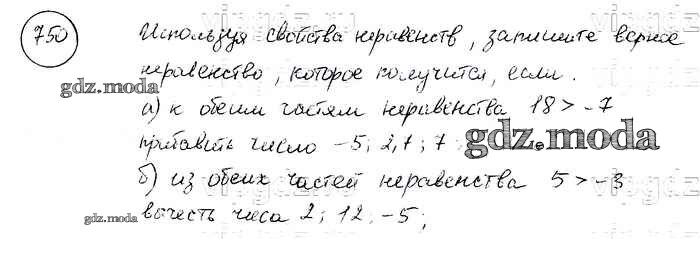 750
Используя свойства неравенств, запишите верное
неравенство, которое получится, если.
gdz.moda
а) к обеим частям неравенства 18 > -7
прибавить число -5; 2,7; 7
gdz.moda
б) из обеих частей неравенства 5 > -3
gdz.moda
вычесть числа 2; 12; -5;